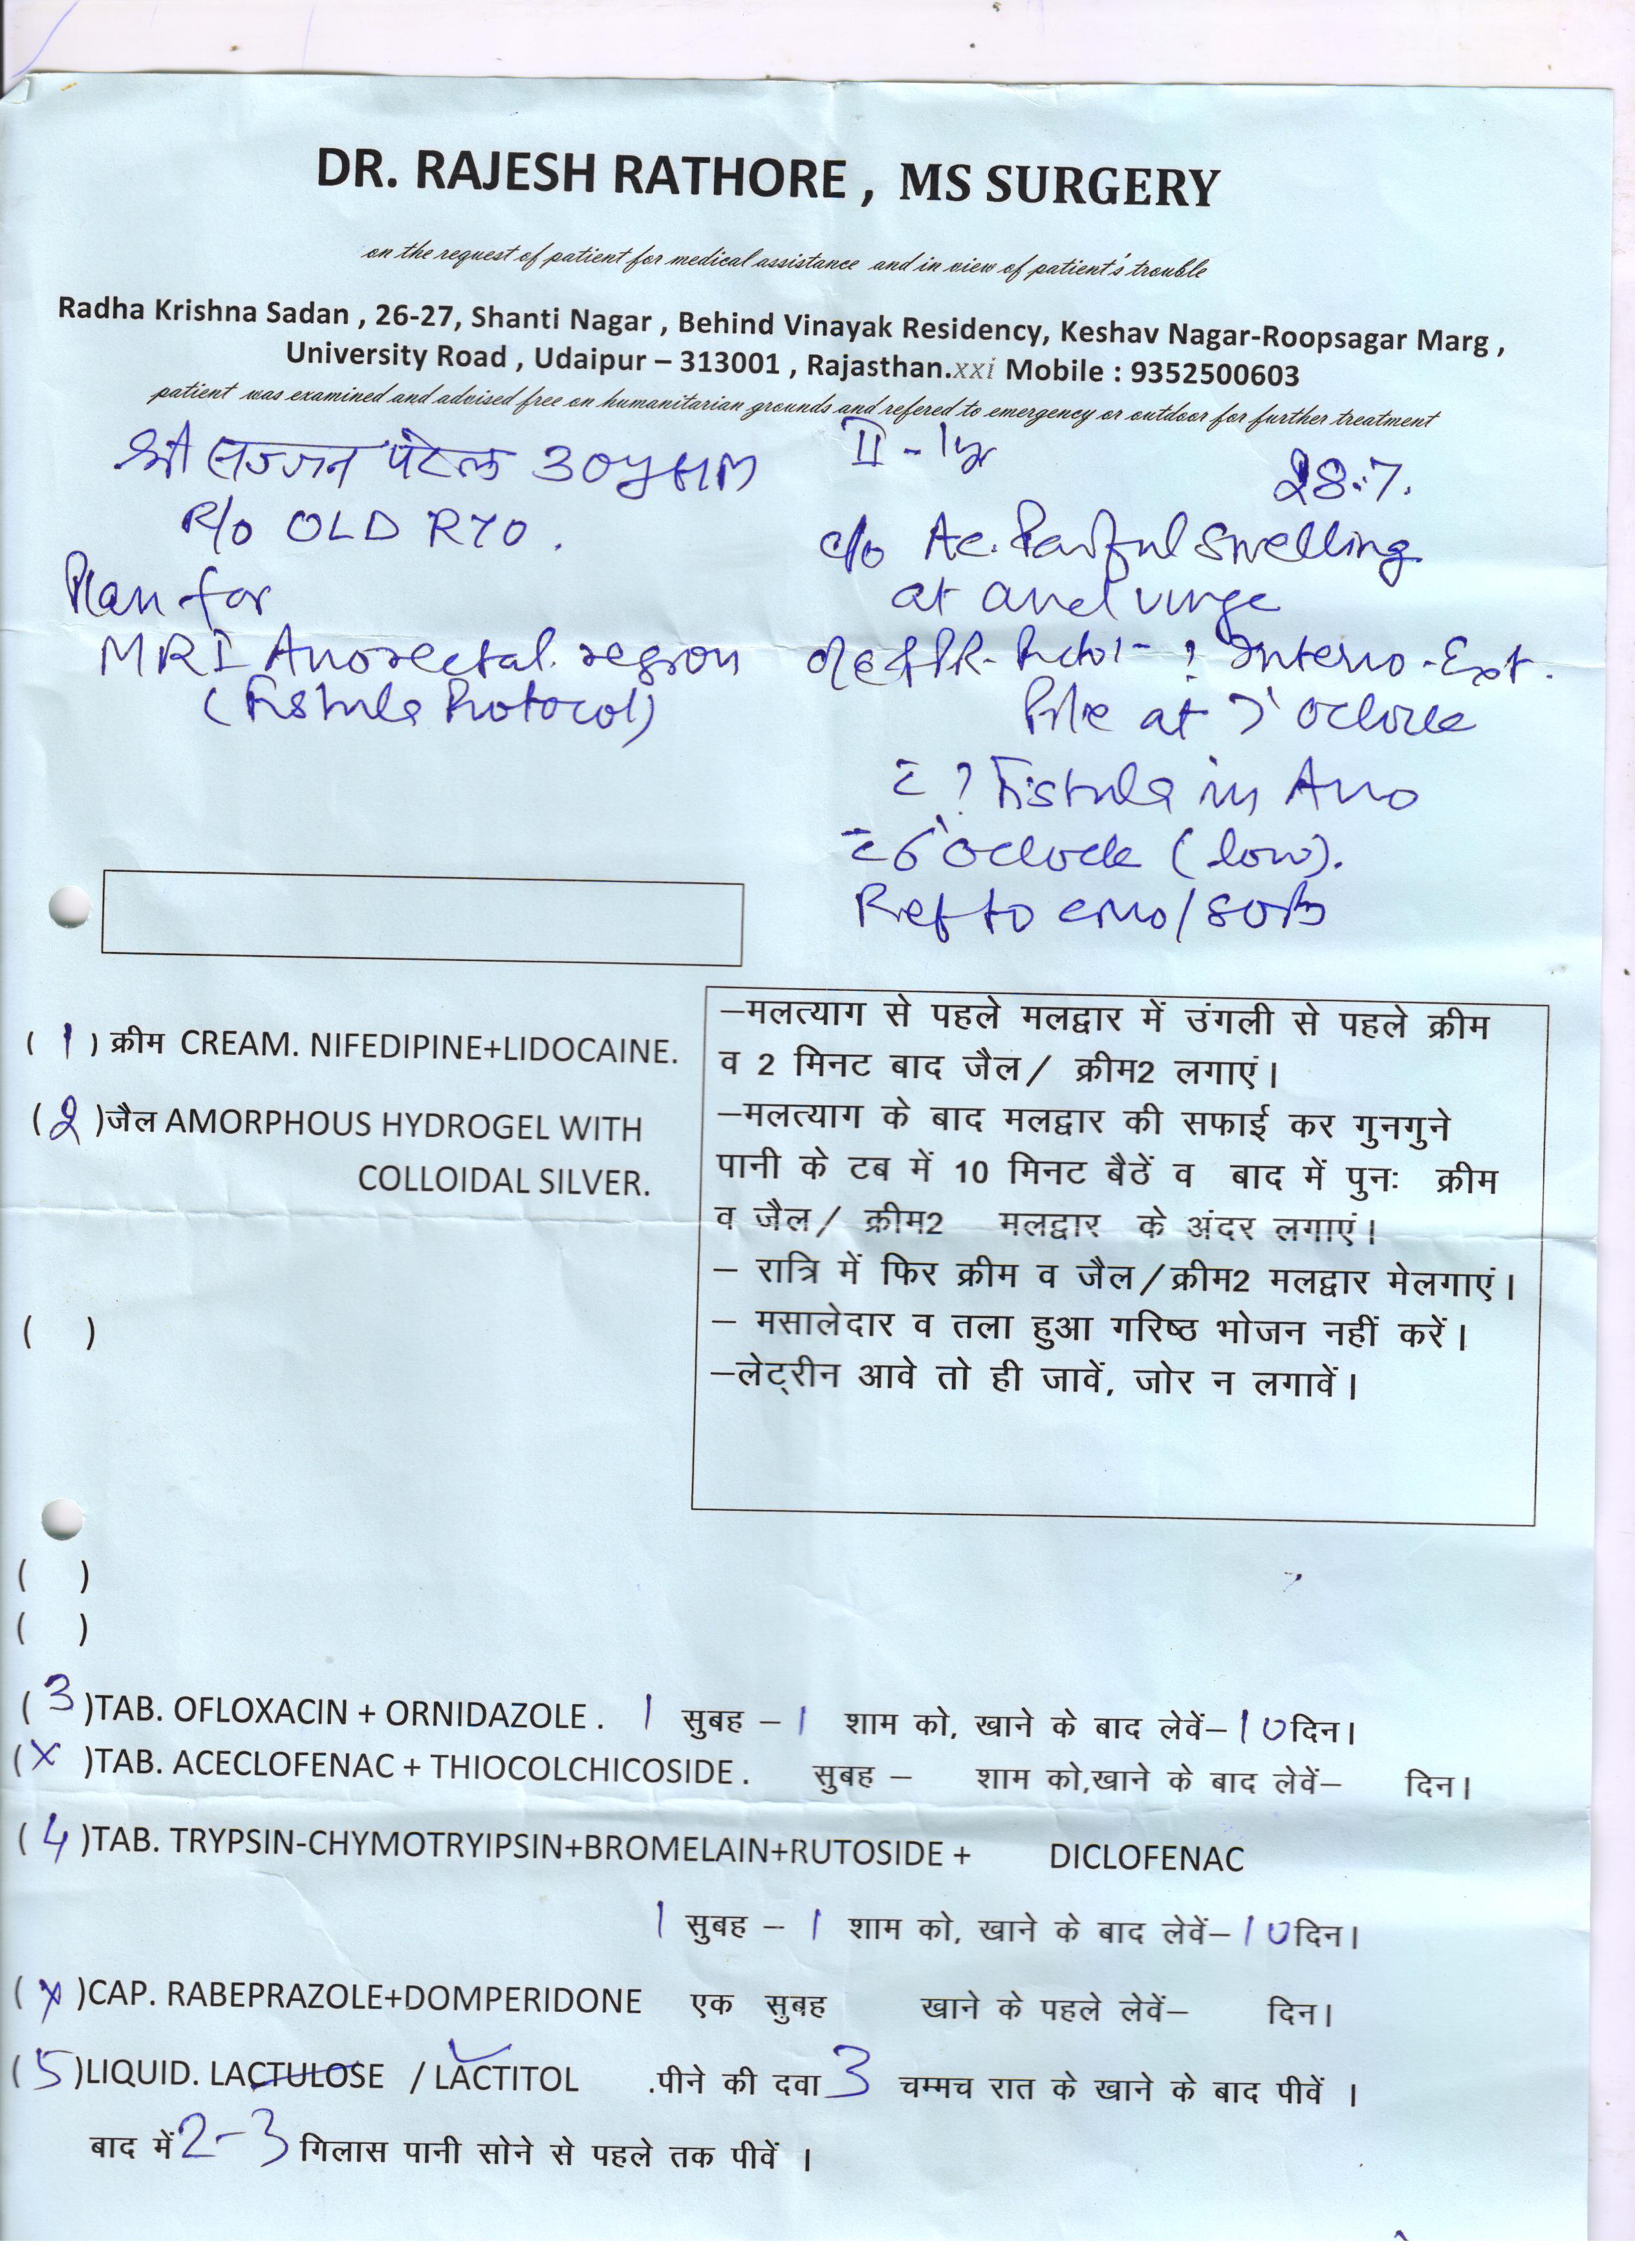 DR. RAJESH RATHORE , MS SURGERY
on the request of patient for medical assistance and in view of patient's trouble
Radha Krishna Sadan , 26-27, Shanti Nagar , Behind Vinayak Residency, Keshav Nagar-Roopsagar Marg ,
University Road , Udaipur – 313001 , Rajasthan.xxi Mobile : 9352500603
patient was examined and advised free on humanitarian grounds and refered to emergency or outdoor for further treatment
श्री सज्जन पटेल 30y
R/o OLD R70 .
Plan for
MRI Anorectal region
(Fistula Protocol)
II - 1yr
28.7.
c/o Ac. Painful Swelling
at anal verge
? Interno-Ext.
Pile at 7' oclock
c̄ ? Fistula in Ano
c̄ 6' oclock (low).
Ref to
( 1 ) क्रीम CREAM. NIFEDIPINE+LIDOCAINE.
( 2 )जैल AMORPHOUS HYDROGEL WITH
COLLOIDAL SILVER.
–मलत्याग से पहले मलद्वार में उंगली से पहले क्रीम
व 2 मिनट बाद जैल/ क्रीम2 लगाएं।
–मलत्याग के बाद मलद्वार की सफाई कर गुनगुने
पानी के टब में 10 मिनट बैठें व बाद में पुनः क्रीम
व जैल/ क्रीम2 मलद्वार के अंदर लगाएं।
– रात्रि में फिर क्रीम व जैल/क्रीम2 मलद्वार मेलगाएं।
– मसालेदार व तला हुआ गरिष्ठ भोजन नहीं करें।
–लेट्रीन आवे तो ही जावें, जोर न लगावें।
( )
( )
( )
( 3 )TAB. OFLOXACIN + ORNIDAZOLE . 1 सुबह – 1 शाम को, खाने के बाद लेवें– 10 दिन।
( x )TAB. ACECLOFENAC + THIOCOLCHICOSIDE . सुबह – शाम को,खाने के बाद लेवें– दिन।
( 4 )TAB. TRYPSIN-CHYMOTRYIPSIN+BROMELAIN+RUTOSIDE + DICLOFENAC
1 सुबह – 1 शाम को, खाने के बाद लेवें– 10 दिन।
( x )CAP. RABEPRAZOLE+DOMPERIDONE एक सुबह खाने के पहले लेवें– दिन।
( 5 )LIQUID. LACTULOSE / LACTITOL .पीने की दवा 3 चम्मच रात के खाने के बाद पीवें ।
बाद में 2-3 गिलास पानी सोने से पहले तक पीवें ।